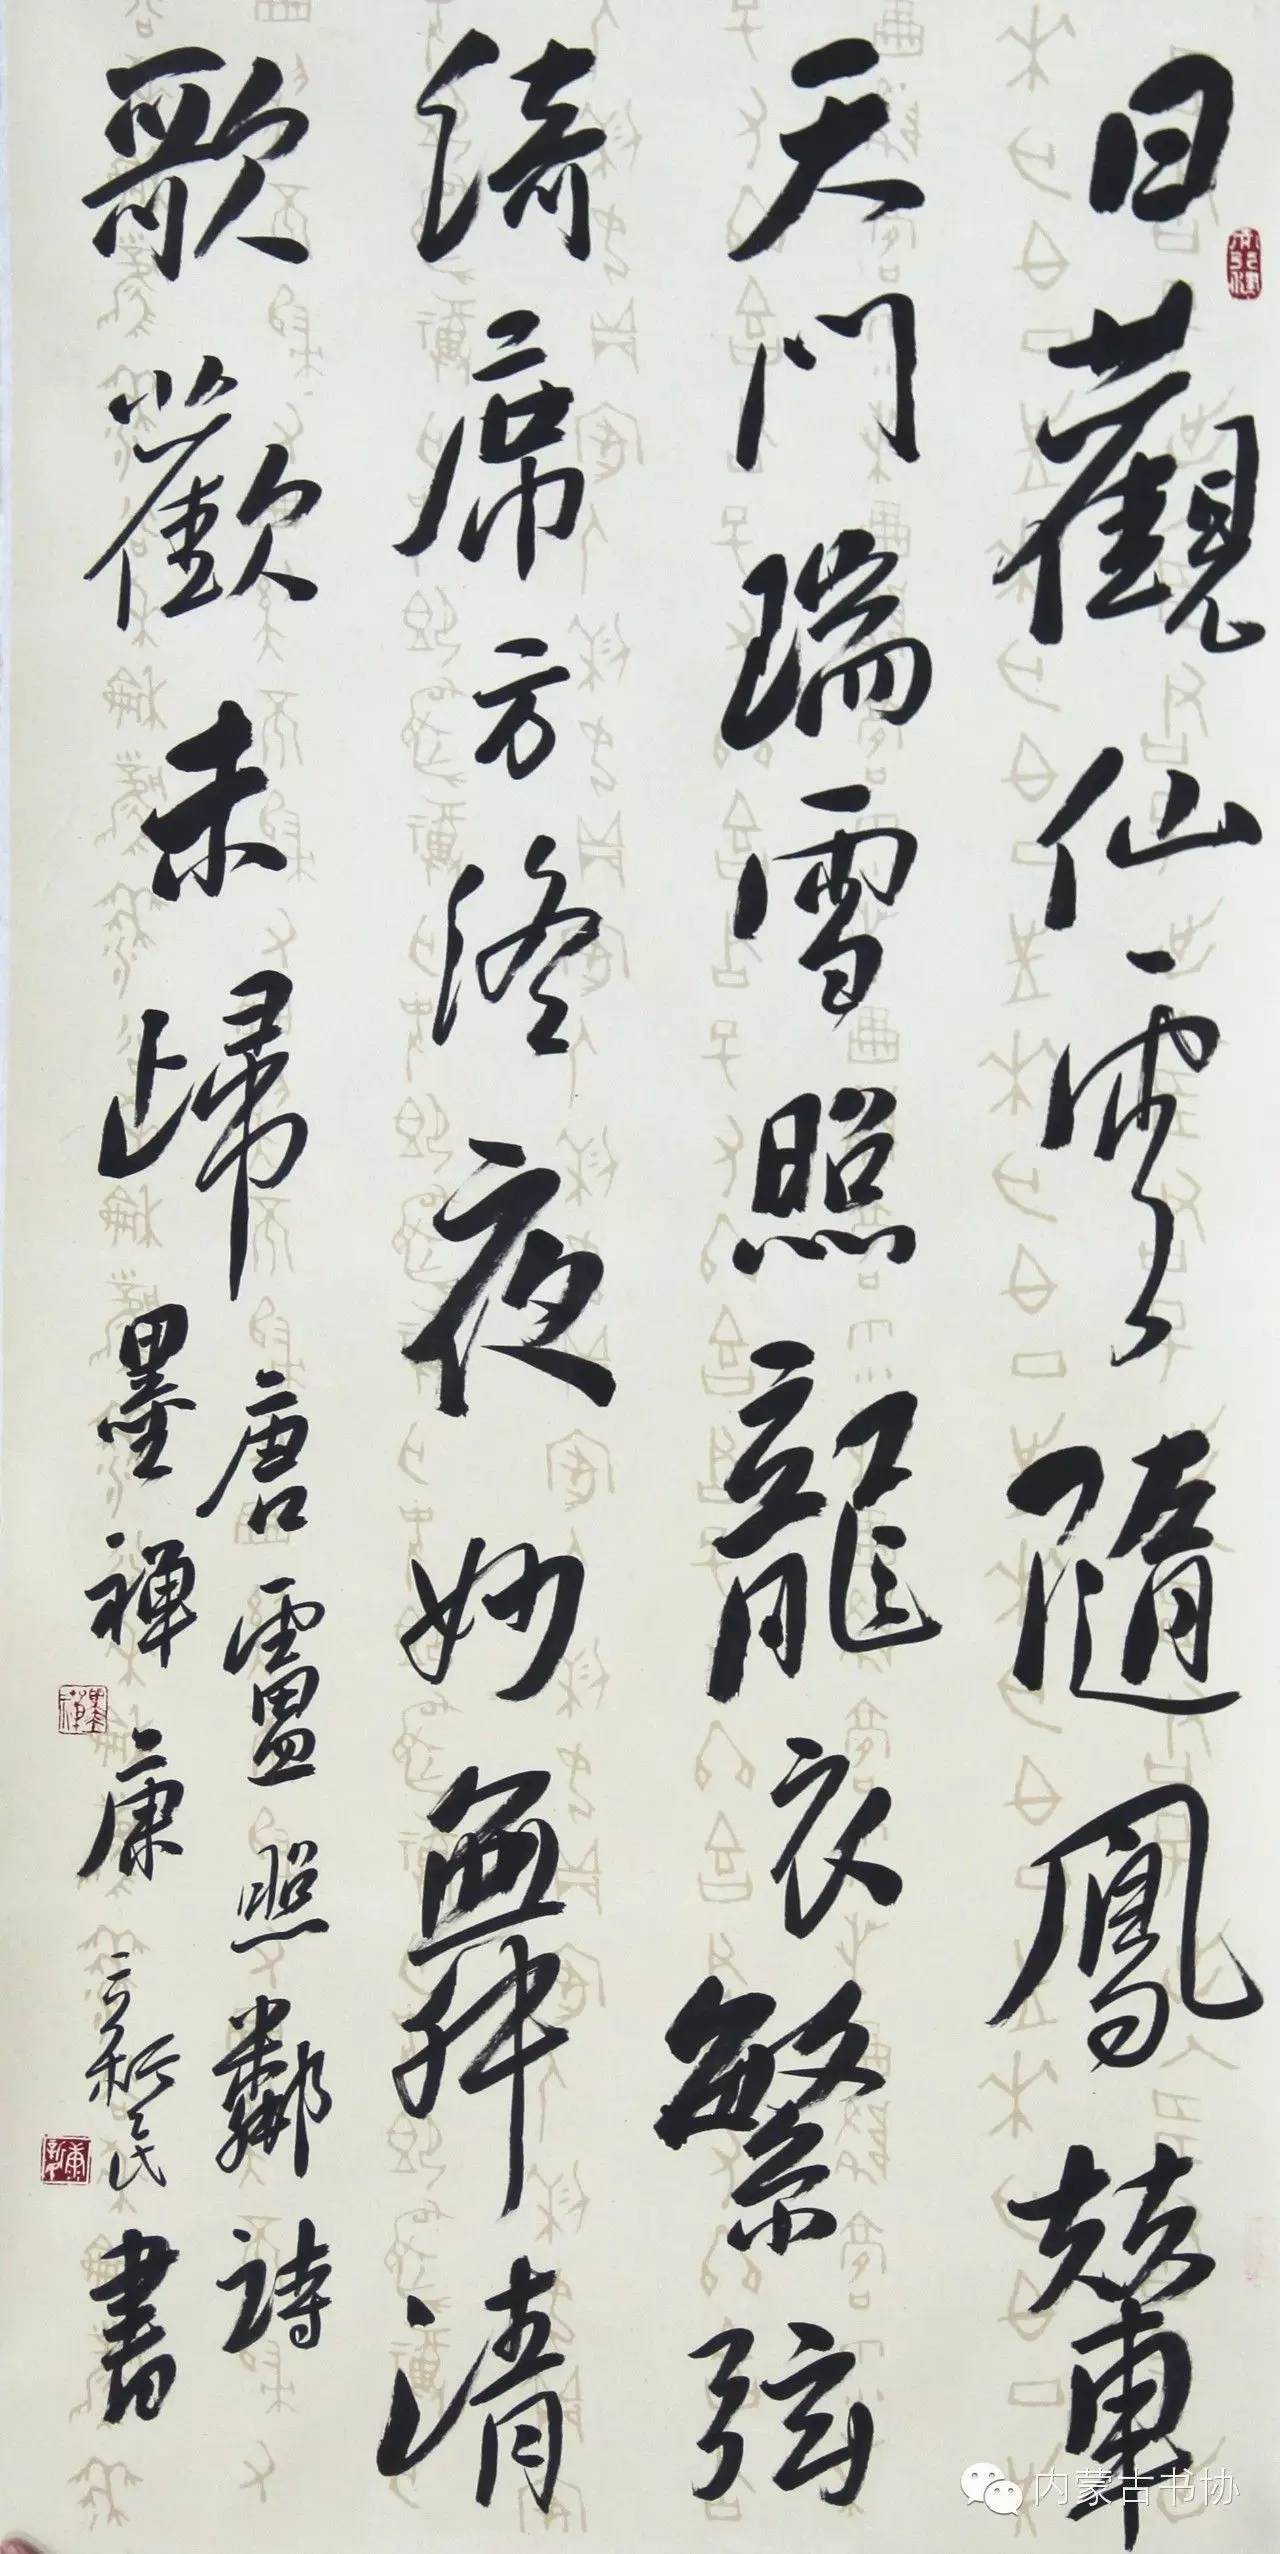 日觀仙雲隨鳳輦
天門瑞雪照龍衣繁弦
綺席方終夜妙舞清
歌歡未歸
唐盧照鄰詩
墨禅康新民書
内蒙古书协